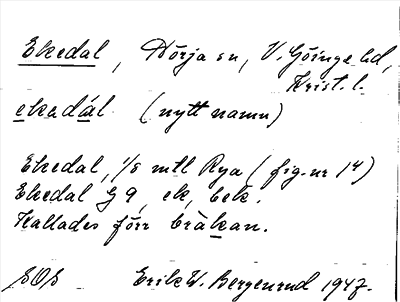 Ekedal, Nörja sn, V. Göinge hd,
Krist. l.
ekadál (nytt namn)
Ekedal, 1/8 mtl Rya (fig. nr 14)
Ekedal G 9, ek, bek.
Kallades förr bràkan.
SOS Erik W. Bergenrud 1947.